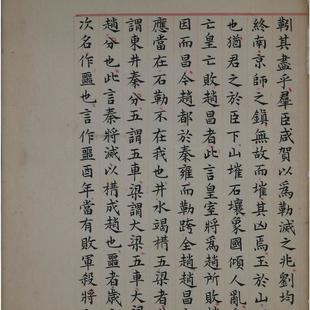 齊其盡乎羣臣咸賀以爲勒滅之兆劉均
終南京師之鎮無故而摧其凶焉玉於山
也猶君之於臣下山摧石壤象國傾人亂
亡皇亡敗趙昌者此言皇室將爲趙所敗
因而昌今趙都於秦雍而勒跨全趙趙昌
應當在石勒不在我也井水竭構五梁者
謂東井秦分五謂五車梁謂大梁五車大
趙分也此言秦將滅以構成趙也罡者歲
次名作罡也言作罡酉年當有敗軍殺將